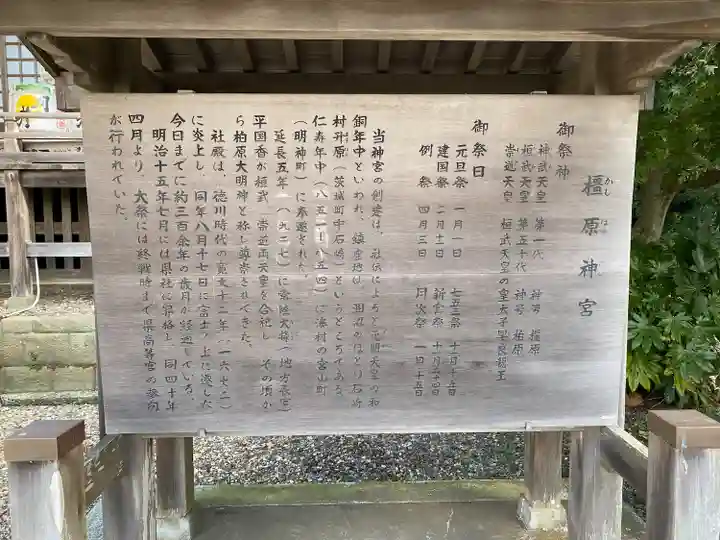 橿原神宮
かし はら
御祭神
神武天皇 第一代 神号 橿原
桓武天皇 第五十代 神号 柏原
崇道天皇 桓武天皇の皇太子早良親王
御祭日
元旦祭 一月一日 七五三祭 十一月十五日
建国祭 二月十一日 新嘗祭 十一月二十四日
例祭 四月三日 月次祭 一日十五日
当神宮の創建は、社伝によると元明天皇の和
銅年中といわれ、鎮座地は、涸沼のほとり石崎
村 原(茨城町中石崎)というところである。
仁寿年中(八五一~八五四)に湊村の宮山町
(明神町)に奉遷された。
延長五年(九二七)に常陸大掾(地方長官)
平国香が桓武、崇道両天皇を合祀し、その頃か
ら柏原大明神と称し尊崇されてきた。
社殿は、徳川時代の寛文十二年(一六七二)
に炎上し、同年八月十七日に富士ノ上に遷した。
今日までに約三百余年の歳月が経過している。
明治十五年七月には県社に昇格し、同四十年
四月より、大祭には終戦時まで県高等官の参向
が行われていた。